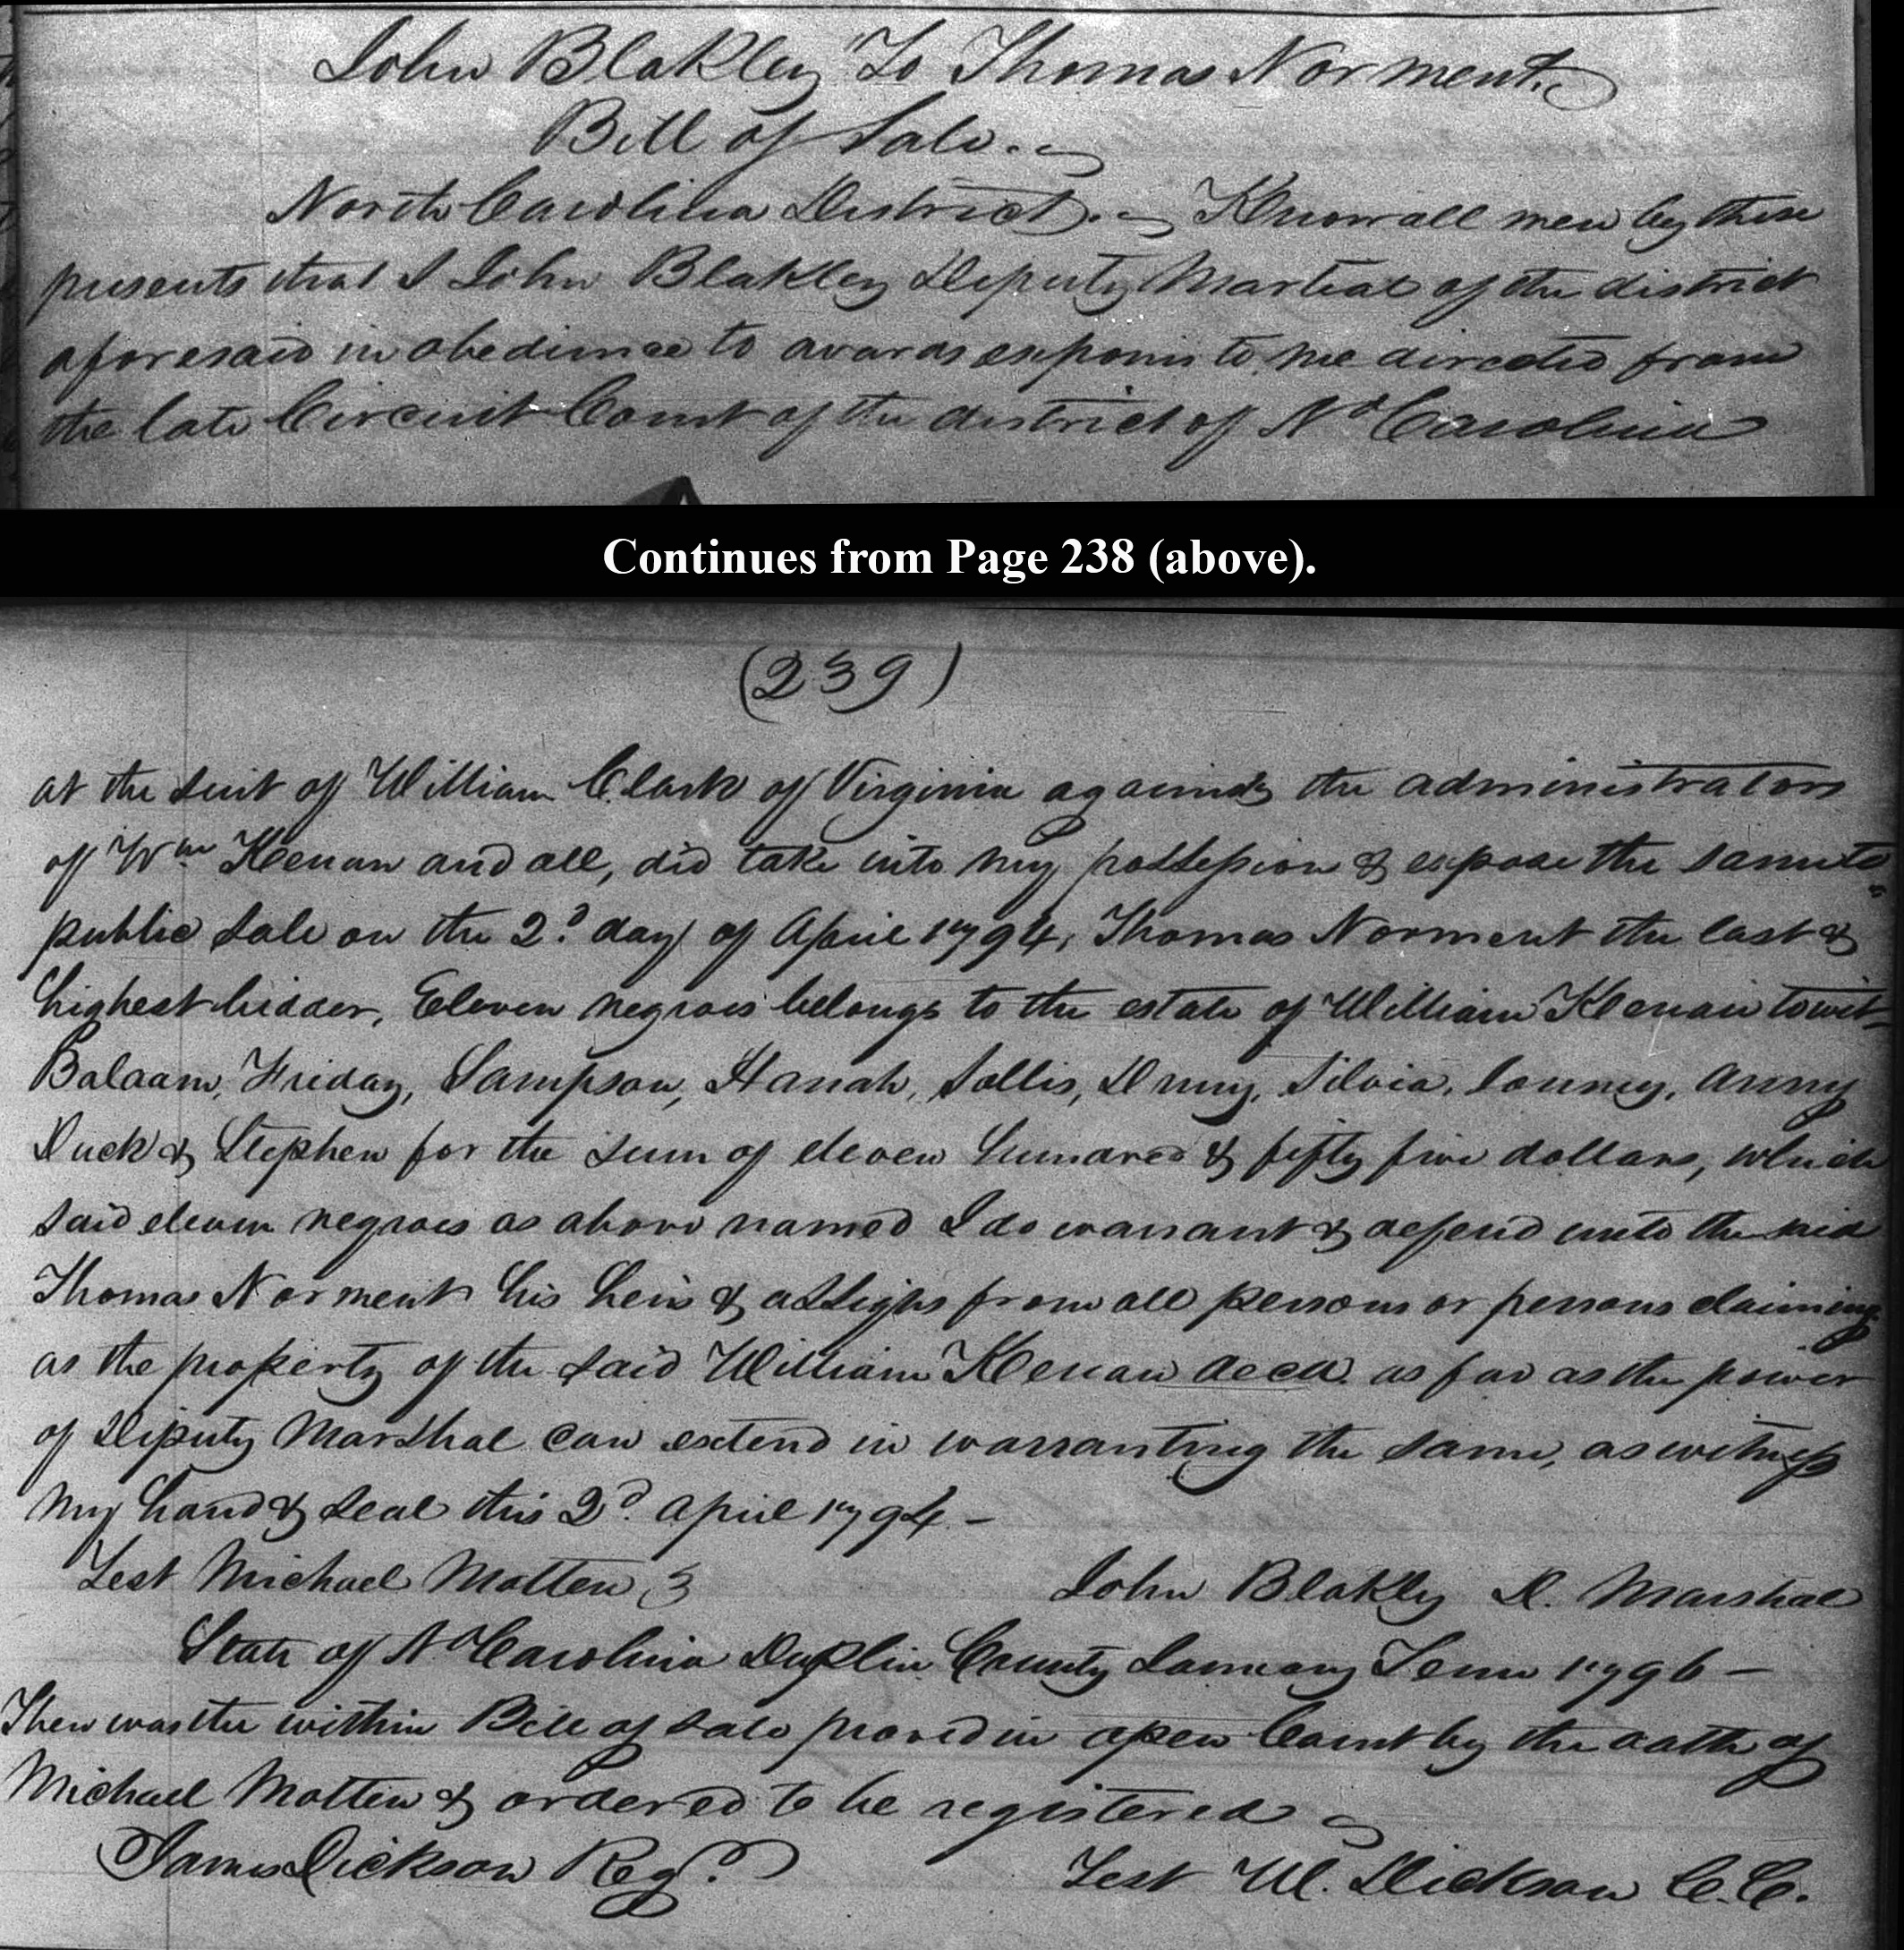 John Blakley To Thomas Norment.
Bill of Sale.
North Carolina District. Know all men by these
presents that I John Blakley Deputy Martial of the district
aforesaid in obedience to avaras exponis to me directed from
the late Circuit Court of the district of No Carolina
Continues from Page 238 (above).
(239)
at the suit of William Clark of Virginia against the administrators
of Wm Kenan and all, did take into my possession & expose the same to
public Sale on the 2d day of April 1794, Thomas Norment the last &
highest bidder, Eleven negroes belongs to the estate of William Kenan towit
Balaam, Friday, Sampson, Hanah, Sollis, Druy, Silvia, Jonney, Anny
Duck & Stephen for the sum of eleven hundred & fifty five dollars, which
said eleven negroes as above named I do warrant & defend unto the said
Thomas Norment his heirs & assigns from all persons or persons claiming
as the property of the said William Kenan decd. as far as the power
of Deputy Marshal can extend in warranting the same, as witness
my hand & seal this 2d April 1794 -
Test Michael Motten John Blakley D. Marshal
State of No Carolina Duplin County January Term 1796 -
Then was the within Bill of Sale proved in open Court by the oath of
Michael Motten & ordered to be registered
James Dickson Regr Test W. Dickson C.C.